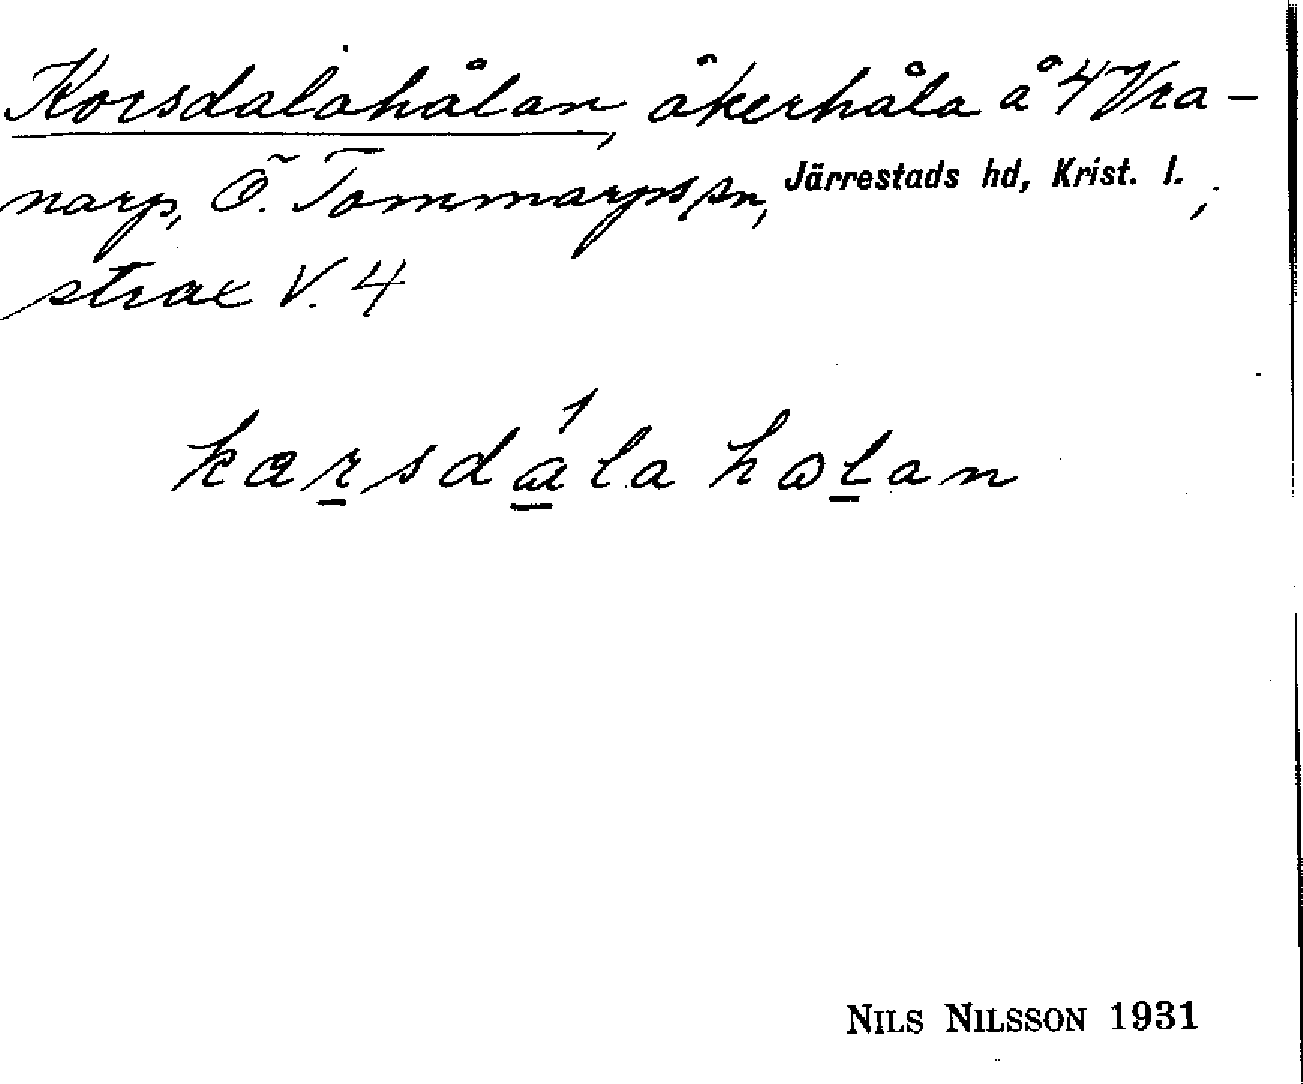 Korsdalahålan, åkerhåla å 4 Vra-
narp, Ö. Tommarps sn, Järrestads hd, Krist. l.;
strax V. 4
kærsdála hålan
NILS NILSSON 1931